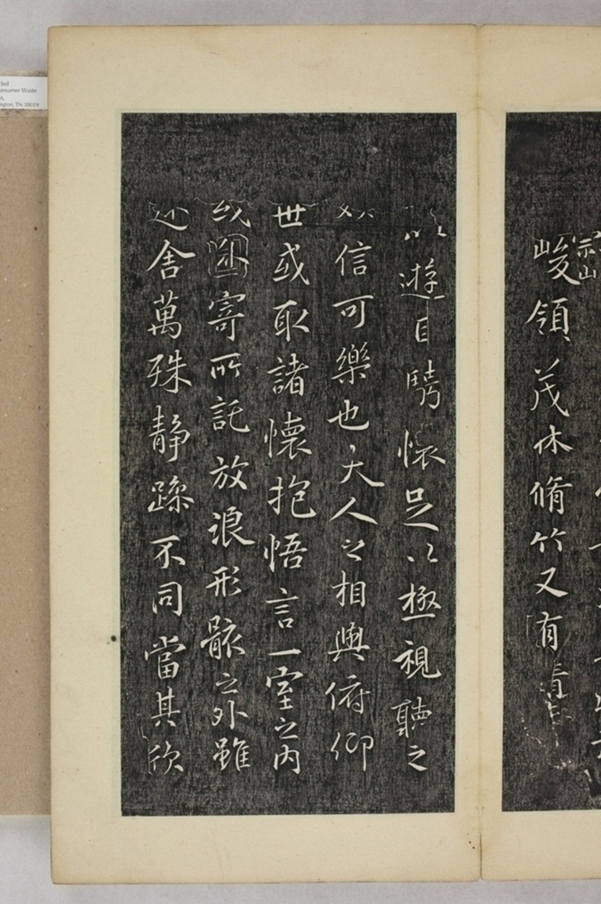 cled
onsumer Waste
A.
ington, TN 38019
山
峻領茂林脩竹又有清
以遊目騁懷足以極視聽之
信可樂也夫人之相與俯仰
世或取諸懷抱悟言一室之內
或因寄所託放浪形骸之外雖
舍萬殊静躁不同當其欣